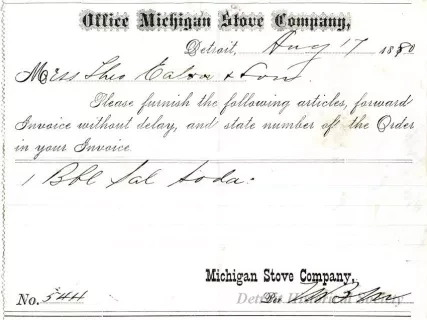 Office Michigan Stove Company,
Detroit, Aug 17 1880
Messrs Theo Eaton & Son.
Please furnish the following articles, forward
Invoice without delay, and state number of the Order
in your Invoice.
1 Bbl Sal Soda.
Michigan Stove Company,
No. 544 Per
Detroit Historical Society